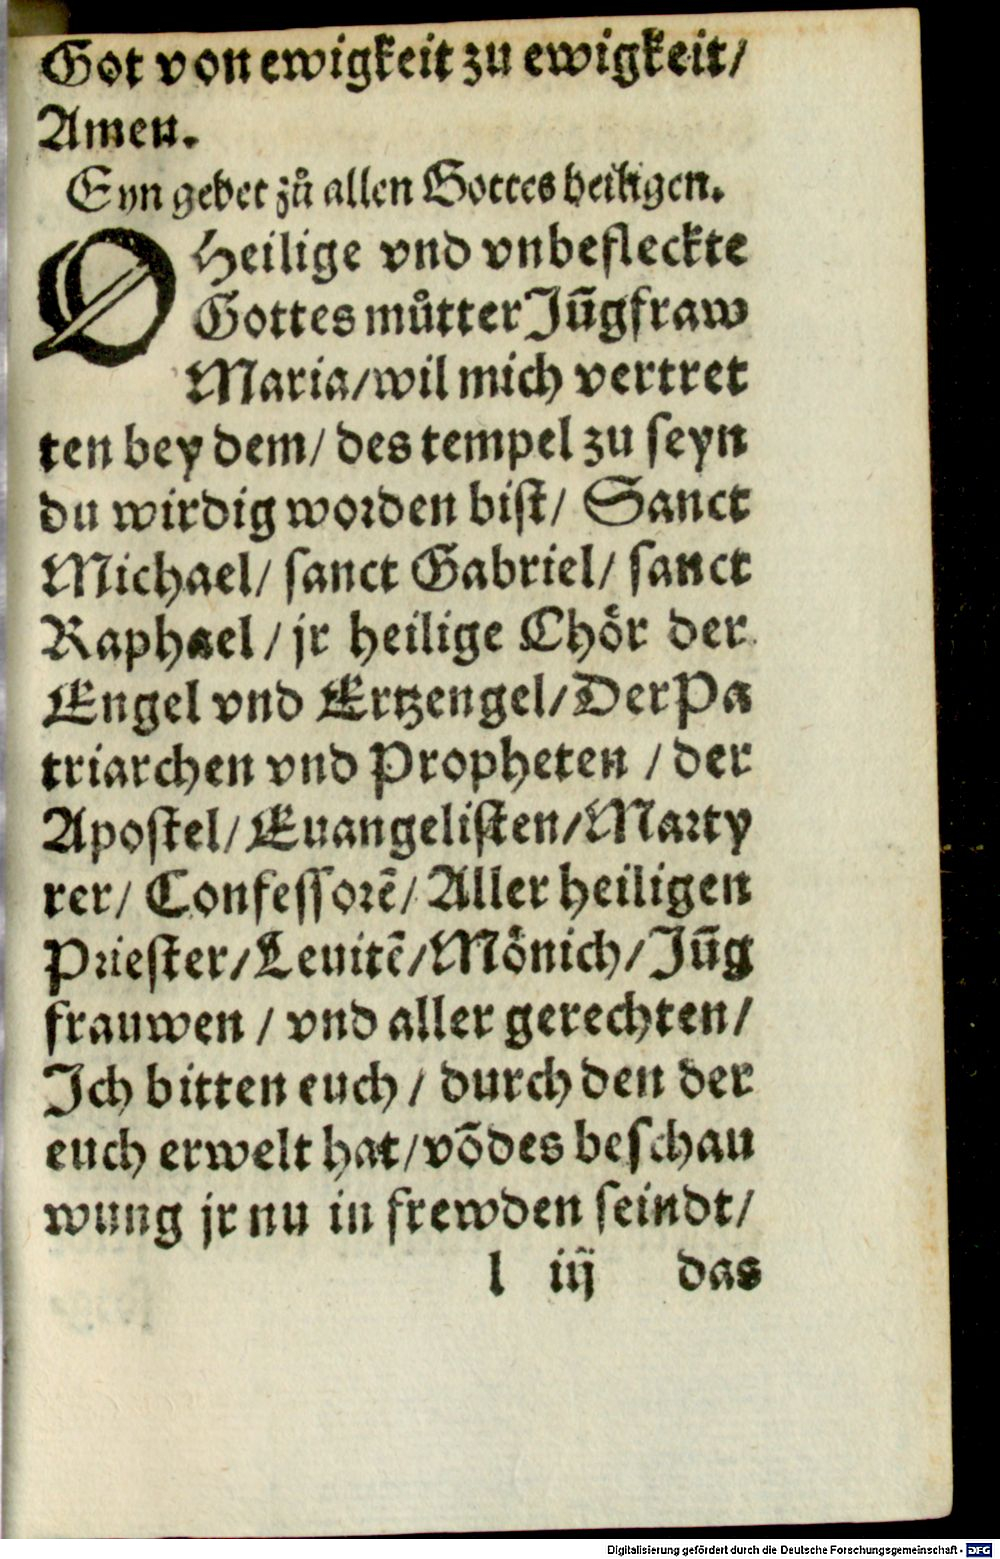 Got von ewigkeit zu ewigkeit/
Amen.
Eyn gebet zů allen Gottes heiligen.
O Heilige vnd vnbefleckte
Gottes můtter Jũgfraw
Maria/wil mich vertret
ten bey dem/ des tempel zu seyn
du wirdig worden bist/ Sanct
Michael/ sanct Gabriel/ sanct
Raphael/ jr heilige Chör der
Engel vnd Ertzengel/Der Pa
triarchen vnd Propheten / der
Apostel/Euangelisten/Marty
rer/ Confessorẽ/Aller heiligen
Priester/Leuitẽ/Mönich/Jũg
frauwen / vnd aller gerechten/
Jch bitten euch / durch den der
euch erwelt hat/võ des beschau
wung jr nu in frewden seindt/
l iij das
Digitalisierung gefördert durch die Deutsche Forschungsgemeinschaft - DFG